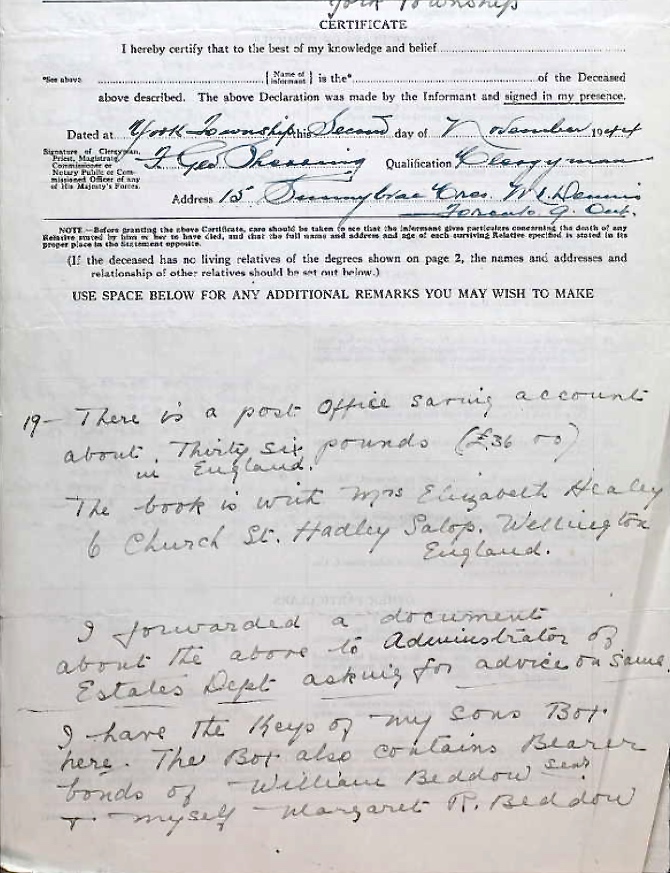 York Township
CERTIFICATE
I hereby certify that to the best of my knowledge and belief
*See above { Name of Informant } is the* of the Deceased
above described. The above Declaration was made by the Informant and signed in my presence.
Dated at York Township this Second day of November 1944
Signature of Clergyman, Priest, Magistrate, Commissioner or Notary Public or Commissioned Officer of any of His Majesty's Forces.
F Geo Qualification Clergyman
Address 15 Sunnybrae Cres. Mt. Dennis
Toronto 9. Ont.
NOTE.—Before granting the above Certificate, care should be taken to see that the informant gives particulars concerning the death of any
Relative stated by him or her to have died, and that the full name and address and age of each surviving Relative specified is stated in its
proper place in the Statement opposite.
(If the deceased has no living relatives of the degrees shown on page 2, the names and addresses and
relationship of other relatives should be set out below.)
USE SPACE BELOW FOR ANY ADDITIONAL REMARKS YOU MAY WISH TO MAKE
19- There is a post Office saving account
about Thirty six pounds (£36 00)
in England.
The book is with Mrs Elizabeth Healey
6 Church St. Hadley Salop. Wellington
England.
I forwarded a document
about the above to Administrator of
Estates Dept asking for advice on same.
I have the Keys of my sons Box
here. The Box also contains Bearer
bonds of William Beddow senr
+ myself Margaret R. Beddow